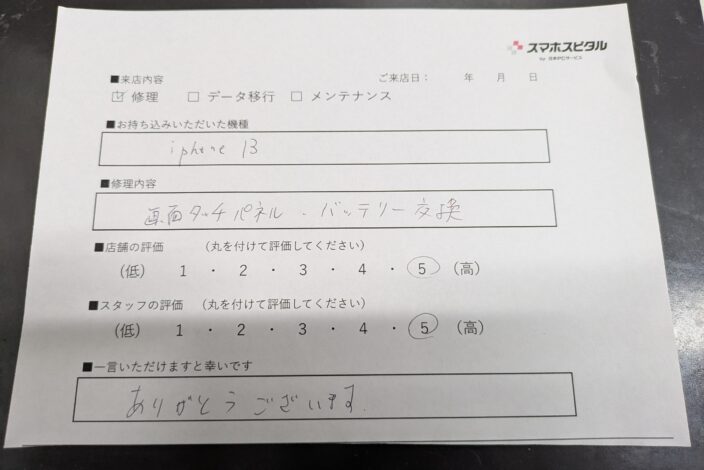 スマホスピタル
by 日本PCサービス
■来店内容
ご来店日： 年 月 日
☑ 修理 □ データ移行 □ メンテナンス
■お持ち込みいただいた機種
iphone 13
■修理内容
画面タッチパネル ・ バッテリー交換
■店舗の評価 （丸を付けて評価してください）
（低） 1 ・ 2 ・ 3 ・ 4 ・ 5 （高）
■スタッフの評価 （丸を付けて評価してください）
（低） 1 ・ 2 ・ 3 ・ 4 ・ 5 （高）
■一言いただけますと幸いです
ありがとうございます.